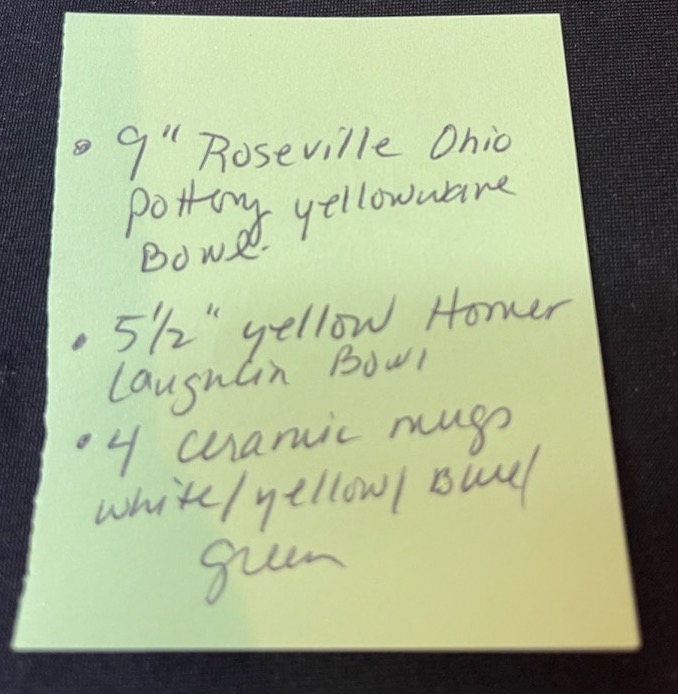 • 9" Roseville Ohio
pottery yellowware
Bowl.
• 5 1/2" yellow Homer
Laughlin Bowl
• 4 ceramic mugs
white/yellow/Blue/
green